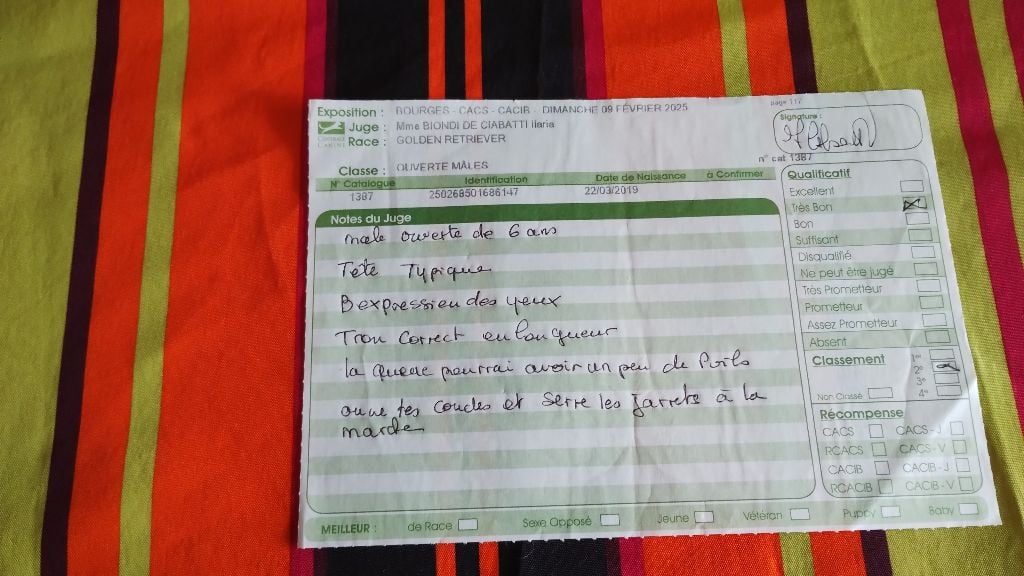 Exposition : BOURGES - CACS - CACIB - DIMANCHE 09 FÉVRIER 2025
page 117
Juge : Mme BIONDI DE CIABATTI Ilaria
Race : GOLDEN RETRIEVER
Signature :
n° cat 1387
Classe : OUVERTE MÂLES
N° Catalogue Identification Date de Naissance à Confirmer
1387 250268501686147 22/03/2019
Notes du Juge
male ouverte de 6 ans
Tête Typique
B expression des yeux
Tron correct en longueur
la queue pourrai avoir un peu de Poils
ouvre les coudes et serre les jarrets à la
marche
Qualificatif
Excellent
Très Bon
Bon
Suffisant
Disqualifié
Ne peut être jugé
Très Prometteur
Prometteur
Assez Prometteur
Absent
Classement 1er
2e
3e
Non Classé 4e
Récompense
CACS CACS - J
RCACS CACS - V
CACIB CACIB - J
RCACIB CACIB - V
MEILLEUR : de Race Sexe Opposé Jeune Vétéran Puppy Baby